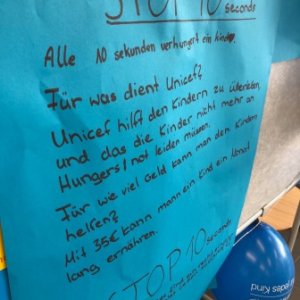 STOP 10 seconds
Alle 10 sekunden verhungert ein Kinder.
Für was dient Unicef?
Unicef hilft den Kindern zu überleben,
und das die Kinder nicht mehr an
Hungers/not leiden müssen.
Für wie viel Geld kann man den Kindern
helfen?
Mit 35€ kann mann ein Kind ein Monat
lang ernähren.
STOP 10 seconds
jedes Kind